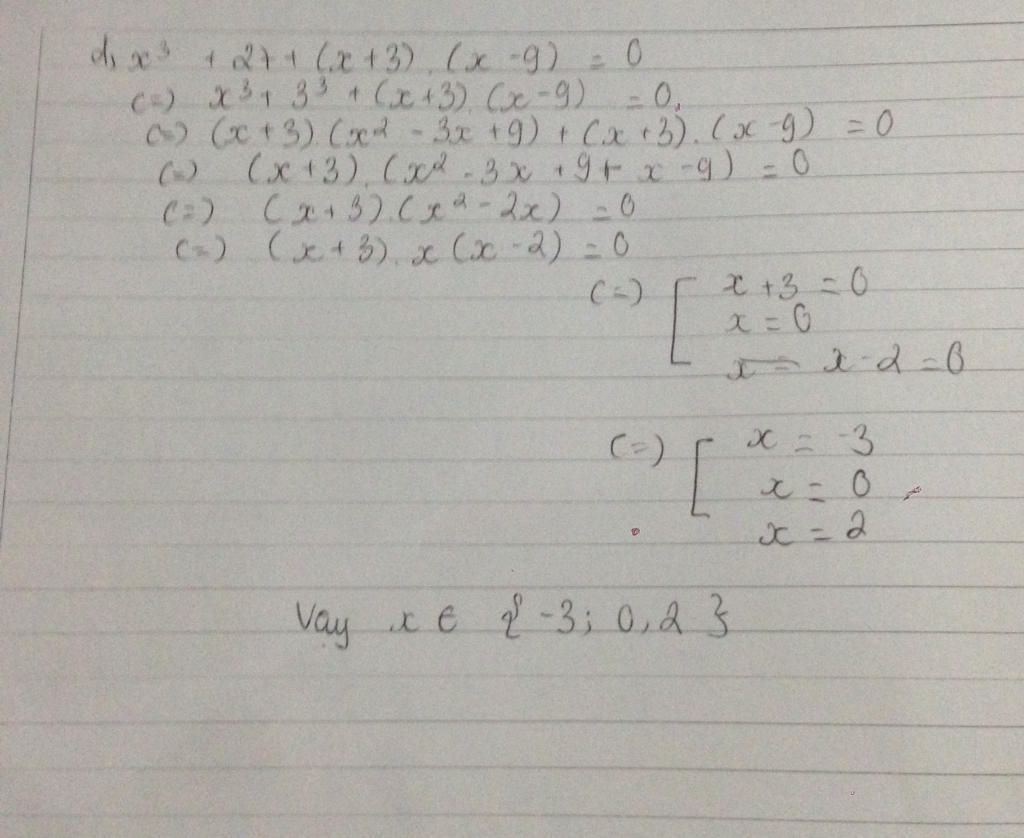 d, x³ + 27 + (x+3).(x-9) = 0
(=) x³ + 3³ + (x+3).(x-9) = 0.
(=) (x+3).(x² - 3x + 9) + (x+3).(x-9) = 0
(=) (x+3).(x² - 3x + 9 + x - 9) = 0
(=) (x+3).(x² - 2x) = 0
(=) (x+3).x(x-2) = 0
(=) [ x+3 = 0
x = 0
x = x-2 = 0
(=) [ x = -3
x = 0
x = 2
Vậy x ∈ {-3; 0, 2}